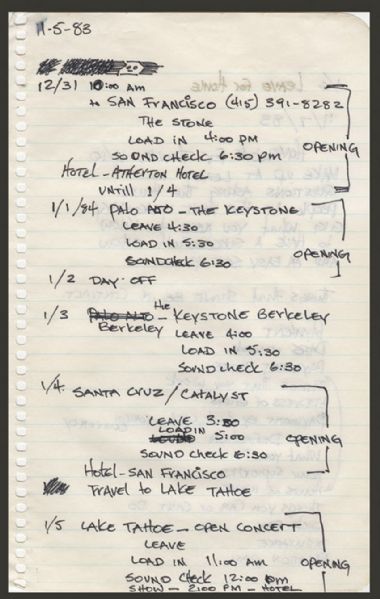 11-5-83
12/31 10:00 am
to SAN FRANCISCO (415) 391-8282
THE STONE
LOAD IN 4:00 pm
SOUNDCHECK 6:30 pm
OPENING
HOTEL - ATHERTON HOTEL
UNTILL 1/4
1/1/84 PALO ALTO - THE KEYSTONE
LEAVE 4:30
LOAD IN 5:30
SOUNDCHECK 6:30
OPENING
1/2 DAY OFF
1/3 PALO ALTO - the KEYSTONE BERKELEY
Berkeley
LEAVE 4:00
LOAD IN 5:30
SOUND CHECK 6:30
1/4 SANTA CRUZ / CATALYST
LEAVE 3:30
LOAD IN
SOUND 5:00
SOUND CHECK 6:30
OPENING
Hotel - SAN FRANCISCO
TRAVEL to LAKE TAHOE
1/5 LAKE TAHOE - OPEN CONCERT
LEAVE
LOAD IN 11:00 am
SOUND CHECK 12:00 pm
OPENING
SHOW - 2:00 PM - HOTEL